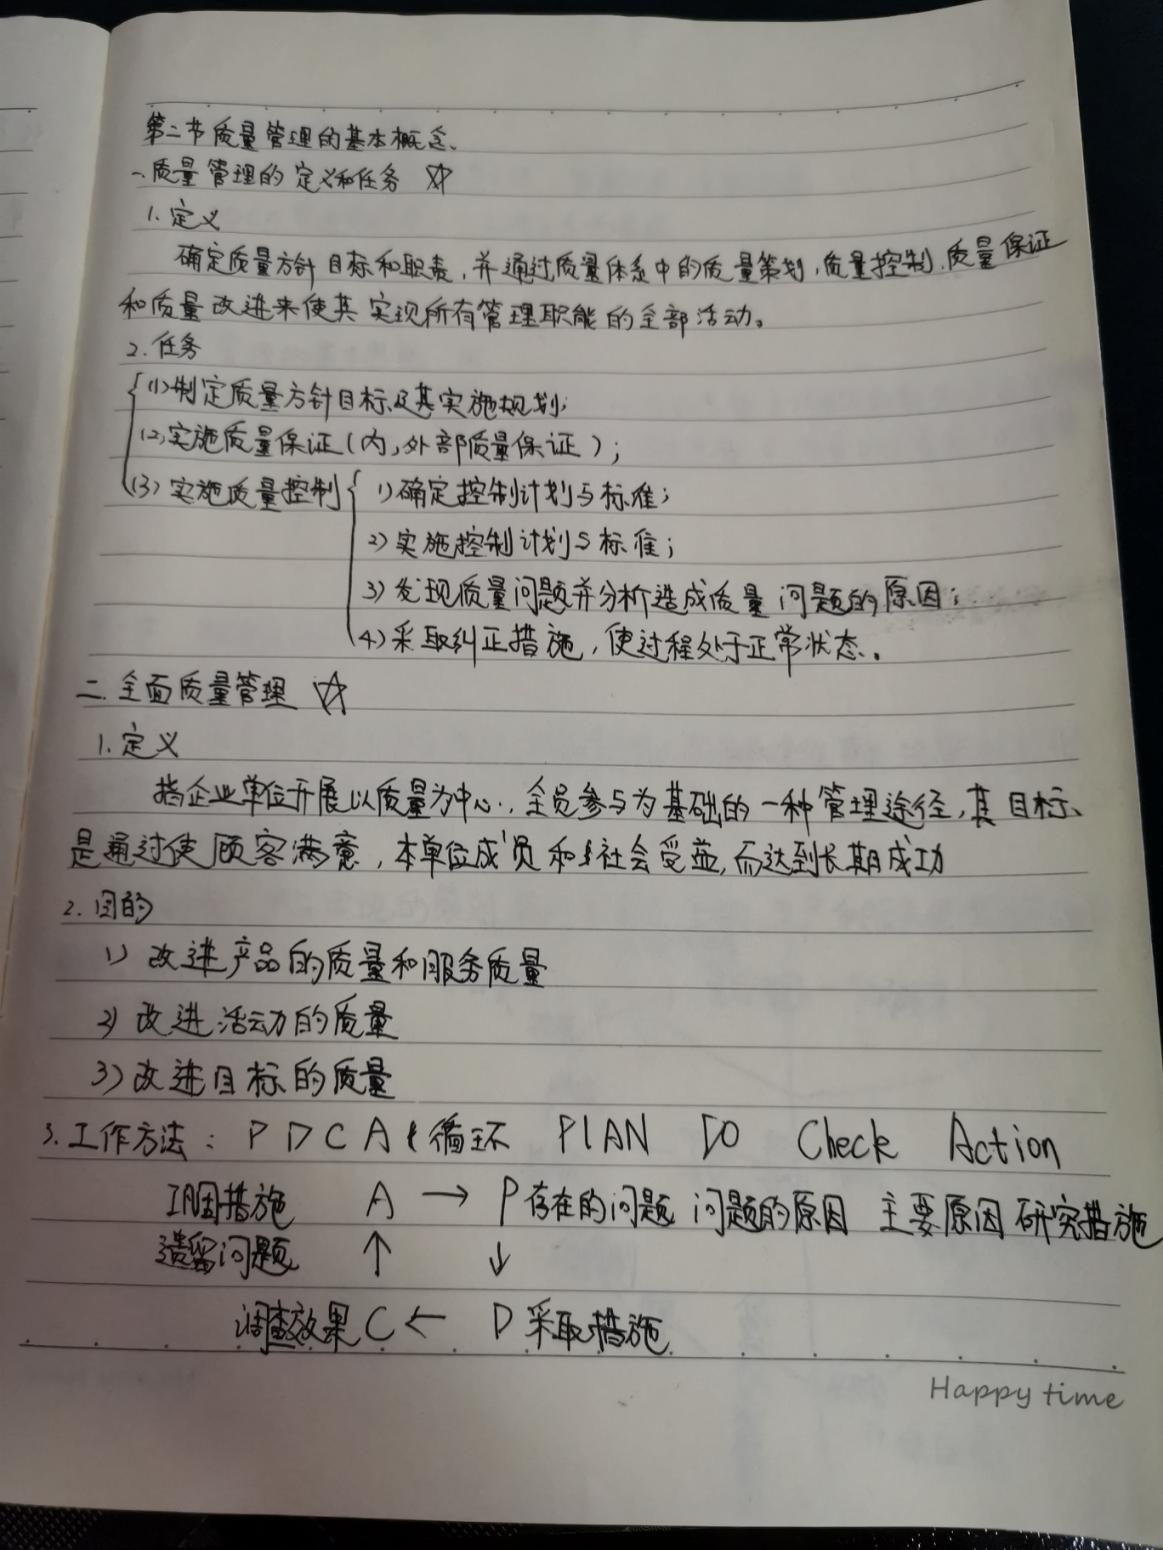 第二节质量管理的基本概念、
一、质量管理的定义和任务 ☆
1. 定义
确定质量方针目标和职责，并通过质量体系中的质量策划，质量控制，质量保证
和质量改进来使其实现所有管理职能的全部活动。
2. 任务
(1)制定质量方针目标及其实施规划；
(2)实施质量保证（内，外部质量保证）；
(3) 实施质量控制 1)确定控制计划与标准；
2) 实施控制计划与标准；
3) 发现质量问题并分析造成质量问题的原因；
4) 采取纠正措施，使过程处于正常状态。
二. 全面质量管理 ☆
1. 定义
指企业单位开展以质量为中心，全员参与为基础的一种管理途径，其目标
是通过使顾客满意，本单位成员和社会受益，而达到长期成功
2. 目的
1) 改进产品的质量和服务质量
2) 改进活动的质量
3) 改进目标的质量
3. 工作方法：PDCA循环 PlAN DO Check Action
巩固措施 A → P 存在的问题 问题的原因 主要原因 研究措施
遗留问题 ↑ ↓
调查效果 C ← D 采取措施
Happy time